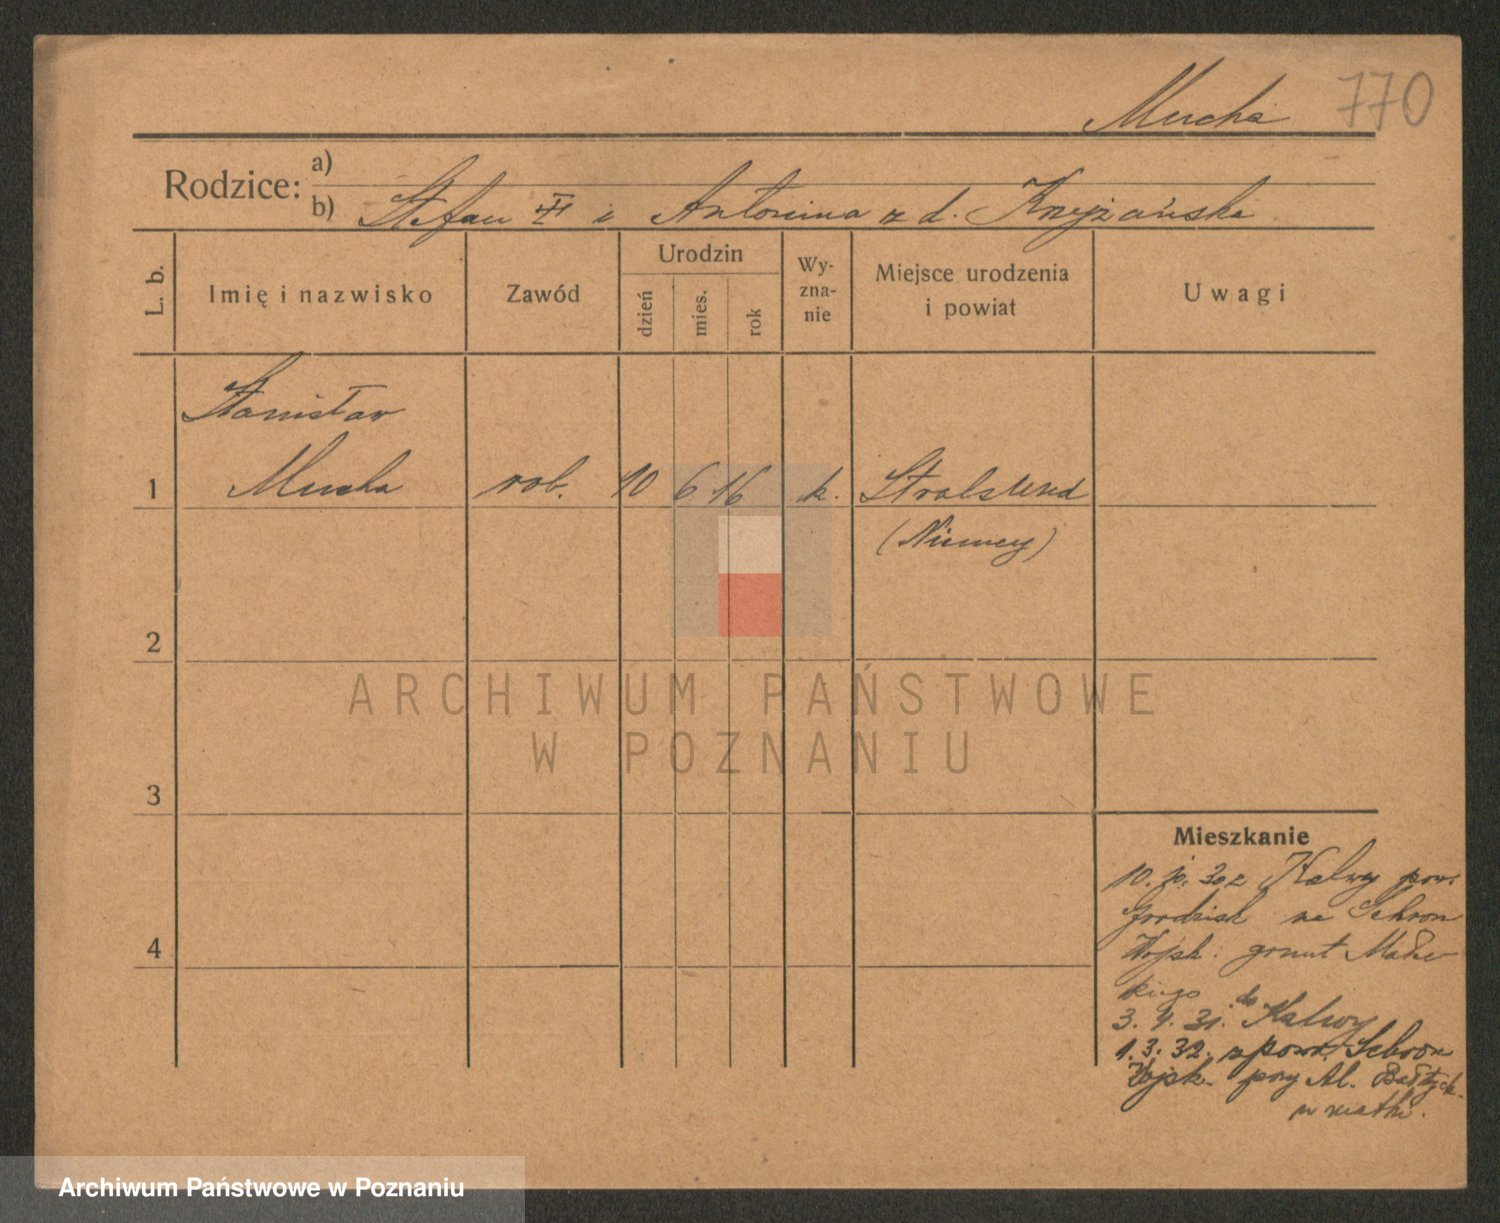 Mucha 770
Rodzice:
a)
b) Stefan II i Antonina z d. Krzyżańska
L. b.
Imię i nazwisko
Zawód
Urodzin
dzień
mies.
rok
Wy-
zna-
nie
Miejsce urodzenia
i powiat
Uwagi
Stanisław
1 Mucha rob. 10 6 16 k. Stralsund
(Niemcy)
2
3
4
ARCHIWUM PAŃSTWOWE
W POZNANIU
Mieszkanie
10. 30 z Kalwy pow.
Grodzisk na Schron
Wojsk.
3. 4. 31. do Kalwy
1. 3. 32. z powr. Schron
Wojsk. przy Al. Bałtyck.
u matki.
Archiwum Państwowe w Poznaniu